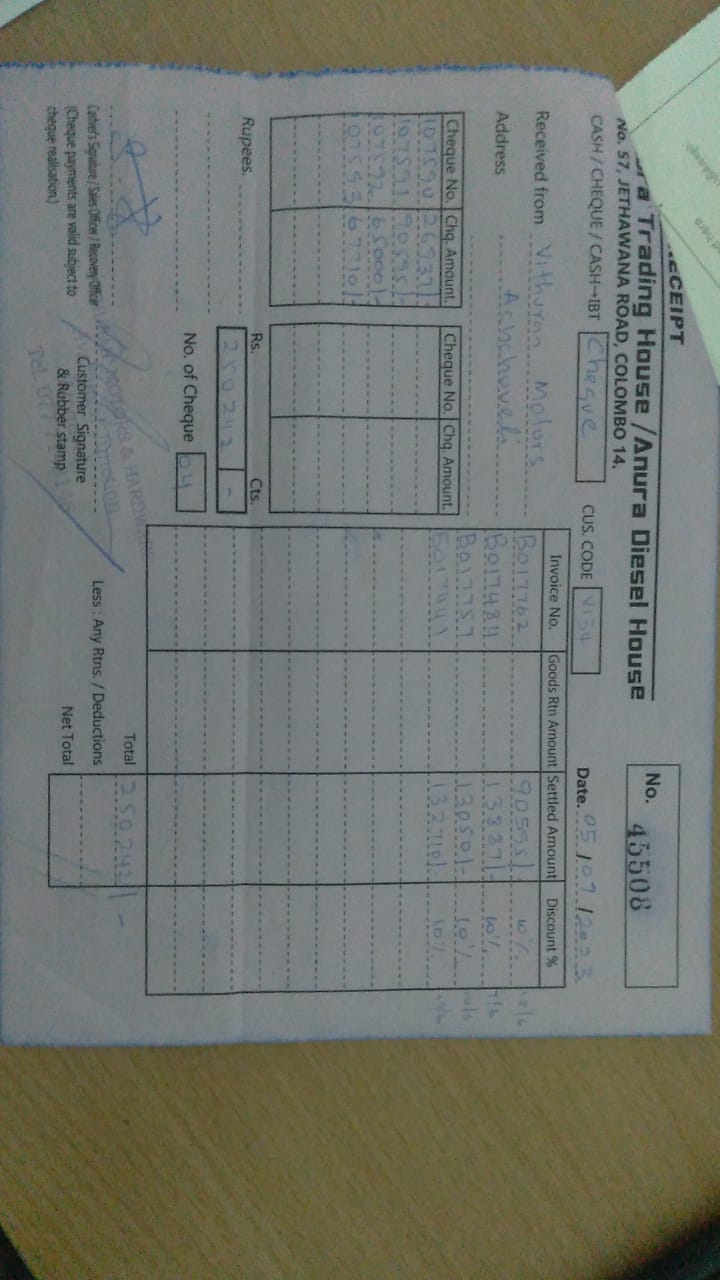 RECEIPT
Trading House / Anura Diesel House
No. 57, JETHAWANA ROAD, COLOMBO 14.
No. 45508
CASH / CHEQUE / CASH-IBT Cheque CUS. CODE V134 Date. 05/07/2023
Received from Vithuran Motors
Address
Cheque No. Chq. Amount. Cheque No. Chq. Amount.
107590 26937/-
107591 90595/-
107592 65000/-
107593 67710/-
Invoice No. Goods Rtn Amount Settled Amount Discount %
B017762 90595/- 10%
B017484 13887/- 10%
B017757 13050/- 10%
132710/- 10%
Rupees. Rs. Cts.
250242 -
No. of Cheque 04
Total 250242/-
Less : Any Rtns. / Deductions
Net Total
Cashier's Signature / Sales Officer / Recovery Officer
(Cheque payments are valid subject to
cheque realisation.)
Customer Signature
& Rubber stamp
& HARDWARE
Tel.